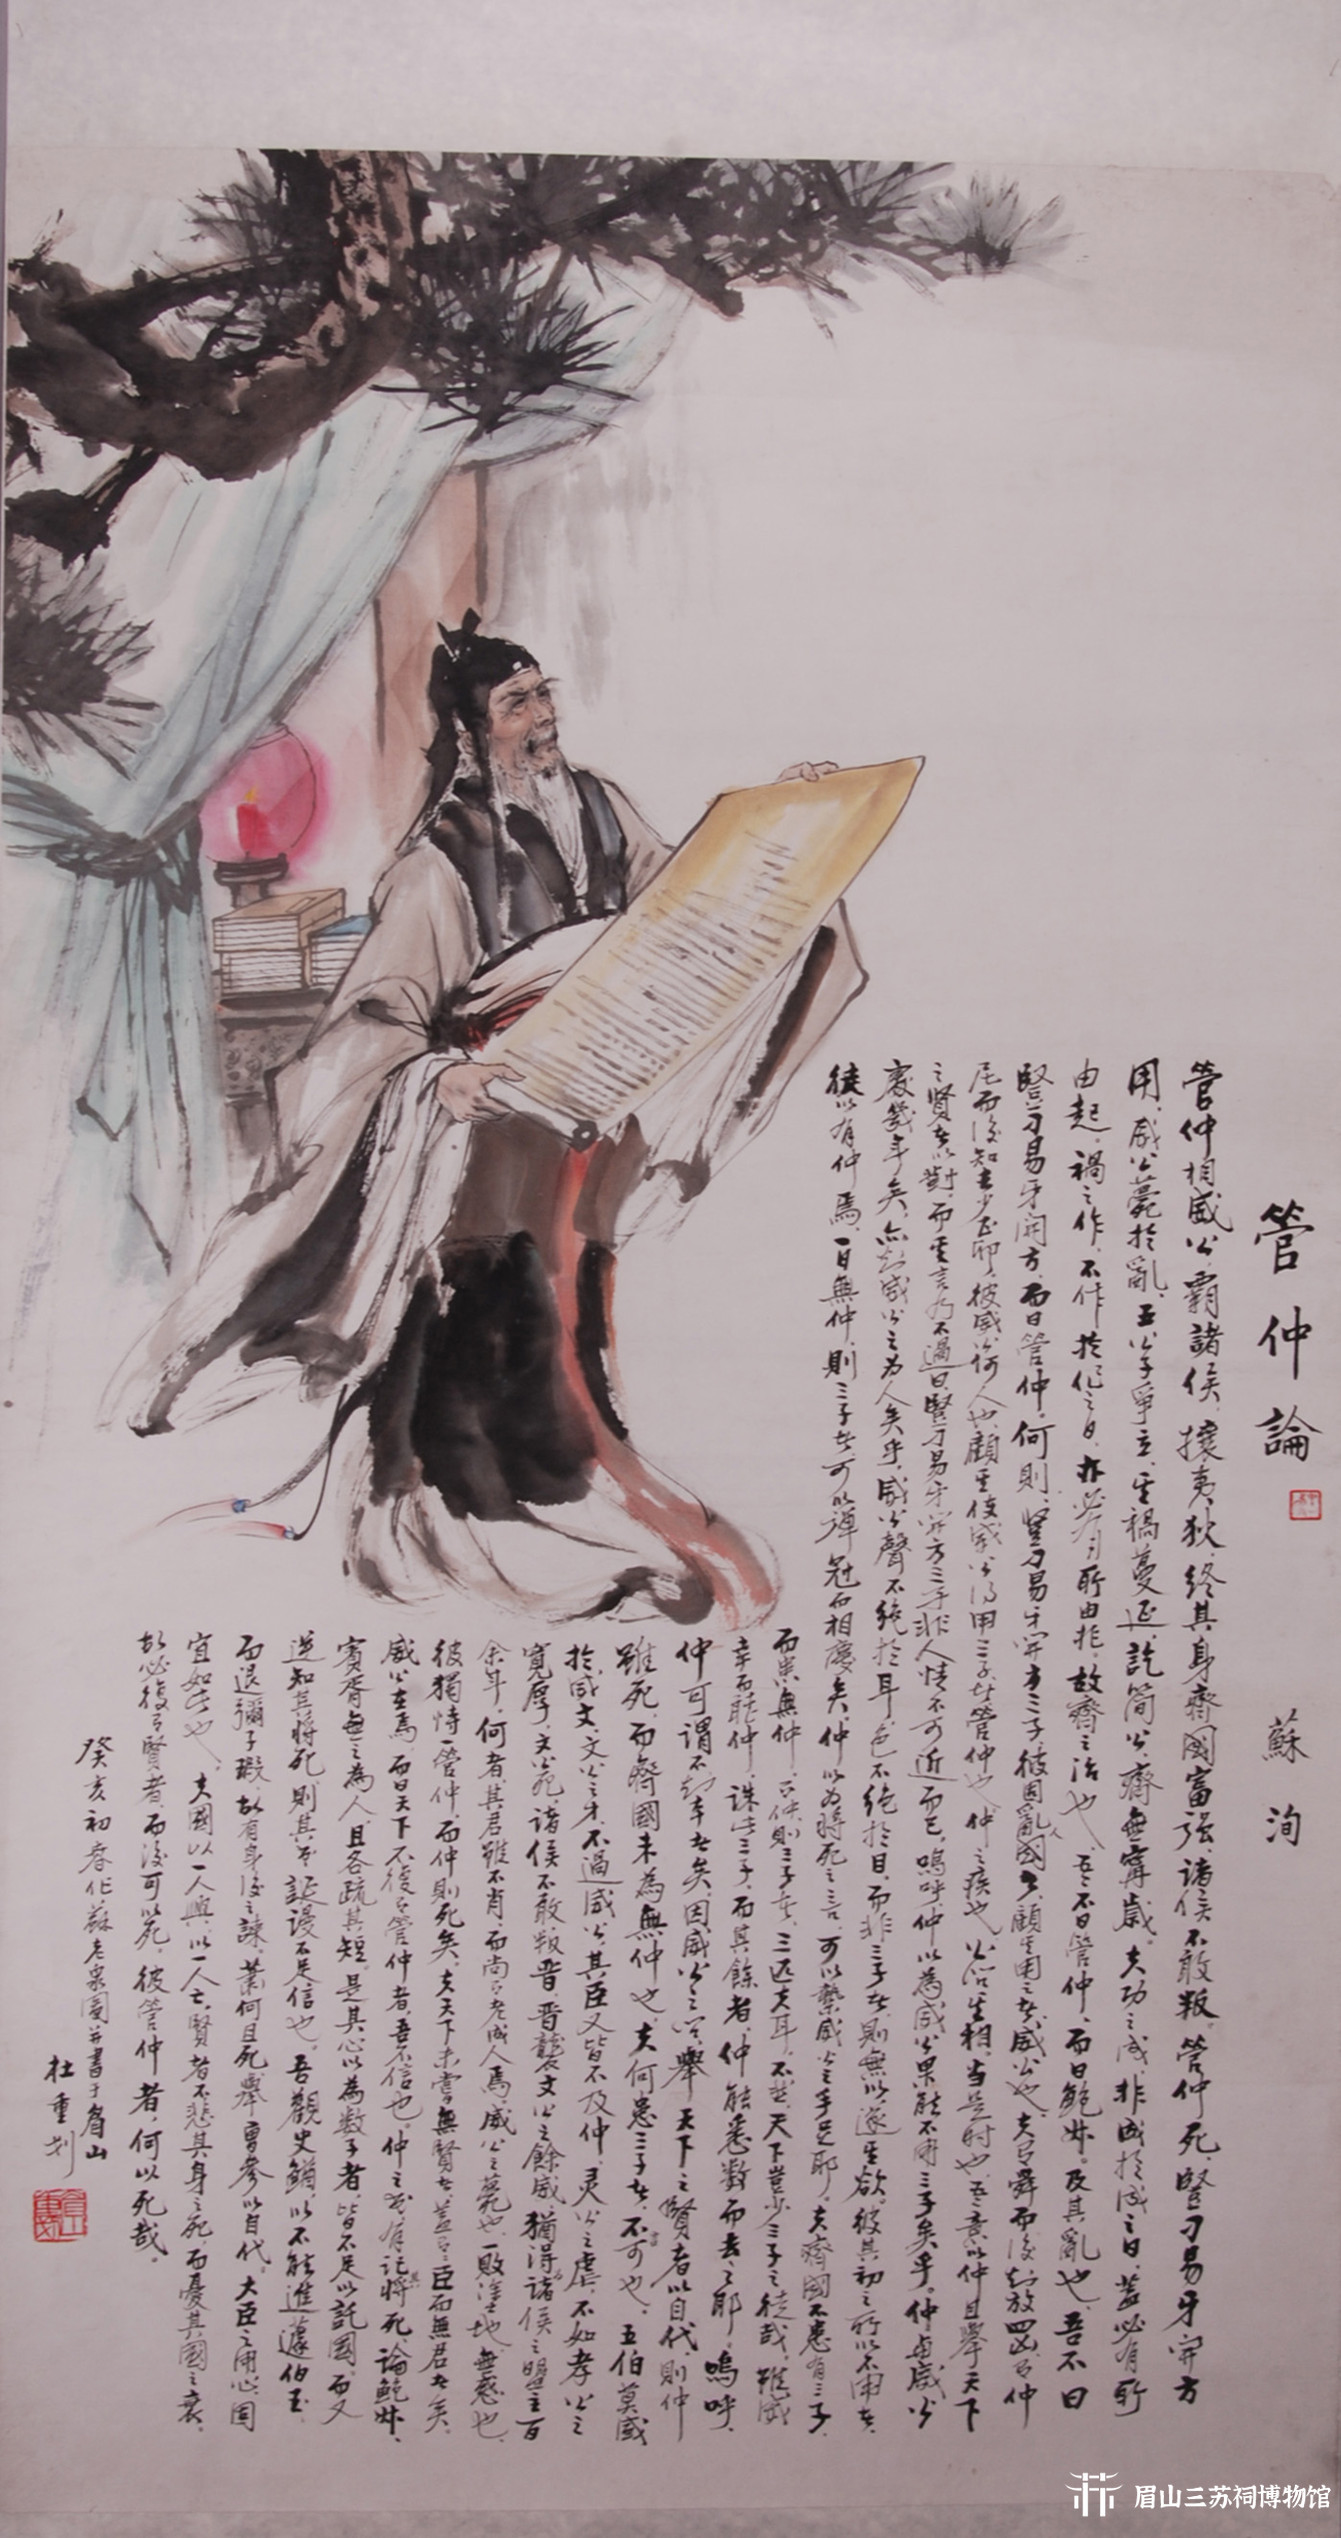 管仲論 蘇洵
管仲相威公,霸諸侯,攘夷狄,終其身齊國富强,諸侯不敢叛。管仲死,豎刁易牙開方
用,威公薨於亂,五公子爭立,其禍蔓延,訖简公,齊無寧歲。夫功之成,非成於成之日,蓋必有所
由起,禍之作,不作於作之日,亦必有所由兆。故齊之治也,吾不曰管仲,而曰鮑叔。及其亂也,吾不曰
豎刁易牙開方,而曰管仲。何則,豎刁易牙開方三子,彼固亂人國者,顧其用之者,威公也。夫有舜而後知放四凶,有仲
尼而後知去少正卯,彼威公何人也,顧其使威公得用三子者管仲也。仲之疾也,公問之相。當是時也,吾意以仲且舉天下
之賢者以對,而其言乃不過曰豎刁易牙開方三子非人情不可近而已。嗚呼,仲以為威公果能不用三子矣乎。仲與威公
處幾年矣,亦知威公之为人矣乎,威公聲不絕於耳,色不絕於目,而非三子者,則無以遂其欲。彼其初之所以不用者,
徒以有仲焉,一日無仲,則三子者可以彈冠而相慶矣,仲以为將死之言,可以縶威公之手足耶。夫齊國不患有三子,
而患無仲,有仲則三子者,三匹夫耳,不然,天下豈少三子之徒哉,雖威
幸而聽仲,誅此三子,而其餘者,仲能悉數而去之耶。嗚呼,
仲可謂不知本者矣,因威公之问,舉天下之賢者以自代,則仲
雖死,而齊國未為無仲也,夫何患三子者,不言可也。五伯莫盛
於威文,文公之才,不過威公,其臣又皆不及仲,灵公之虐,不如孝公之
寬厚,文公死,諸侯不敢叛晋,晋襲文公之餘威,猶得為諸侯之盟主百
余年,何者,其君雖不肖,而尚有老成人焉,威公之薨也,一敗塗地,無惑也,
彼獨恃一管仲,而仲則死矣。夫天下未嘗無賢者,蓋有臣而無君者矣。
威公在焉,而曰天下不復有管仲者,吾不信也。仲之書,有記其將死,論鮑叔、
賓胥無之為人,且各疏其短。是其心以為數子者,皆不足以託國,而又
逆知其將死,則其書誕謾不足信也。吾觀史鰌,以不能進蘧伯玉,
而退彌子瑕,故有身後之諫。蕭何且死,舉曹參以自代。大臣之用心,固
宜如此也。夫國以一人興,以一人亡,賢者不悲其身之死,而憂其國之衰。
故必復有賢者,而後可以死。彼管仲者,何以死哉。
癸亥初春作蘇老泉圖并書于眉山
杜重划
眉山三苏祠博物馆